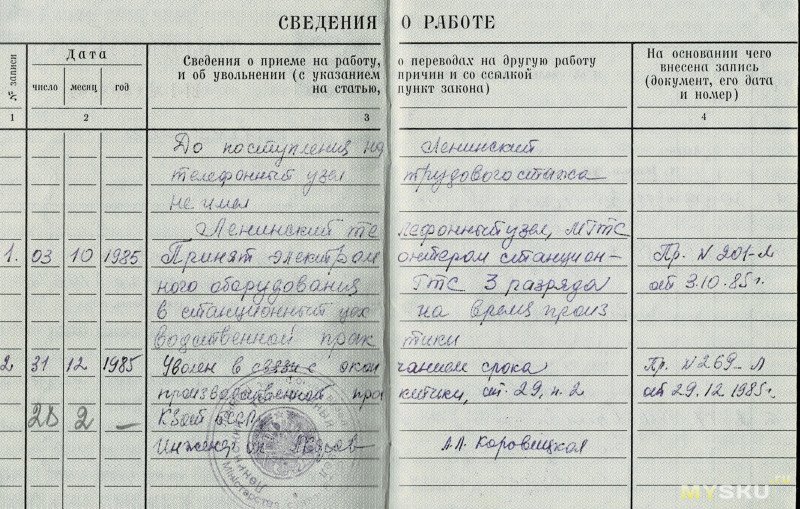 СВЕДЕНИЯ О РАБОТЕ
№ записи
Дата
число месяц год
Сведения о приеме на работу, о переводах на другую работу
и об увольнении (с указанием причин и со ссылкой
на статью, пункт закона)
На основании чего
внесена запись
(документ, его дата
и номер)
1 2 3 4
До поступления на Ленинский
телефонный узел трудового стажа
не имел
Ленинский телефонный узел, МГТС
1. 03 10 1985 Принят электромонтером станцион- Пр. N 201-Л
ного оборудования ГТС 3 разряда от 3.10.85г.
в станционный цех на время произ
водственной практики
2 31 12 1985 Уволен в связи с окончанием срока Пр. N 269-Л
производственной практики, ст. 29, п. 2 от 29.12.1985г.
28 2 – КЗоТ РСФСР
Инженер ок А.А. Коровицкая
MYSKU.ru